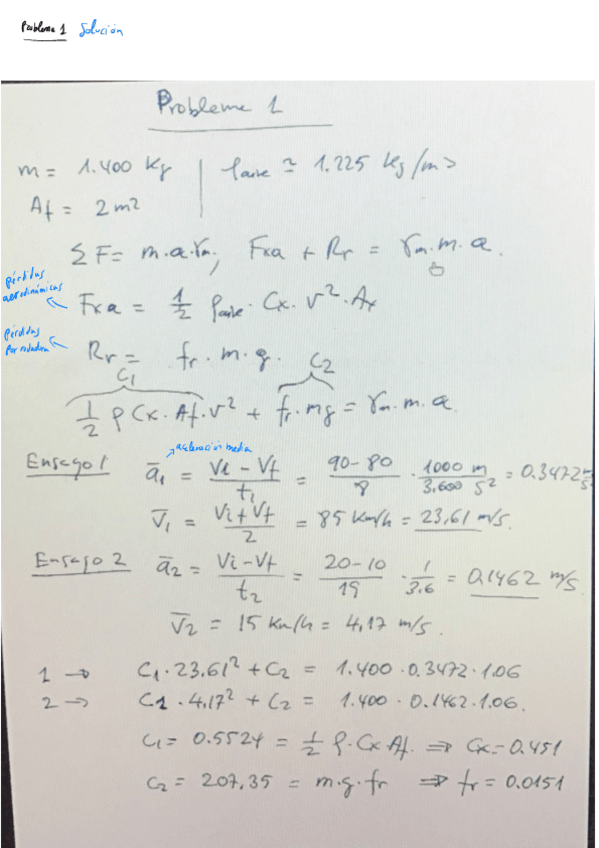 Problema 1 Solución
Probleme 1
m = 1.400 kg | ρaire ≃ 1.225 kg/m3
Af = 2 m2
Σ F = m.a.γm; Fxa + Rr = γm.m.a.
pérdidas aerodinámicas
Fxa = 1/2 ρaire · Cx. v² · Af
Pérdidas por rodadura
Rr = fr. m. g.
C1 C2
1/2 ρ Cx. Af. v² + fr. mg = γm. m. a.
aceleración media
Ensayo 1 ā1 = (Vi - Vf)/t1 = (90-80)/8 · 1000 m/3.600 s² = 0.3472 m/s²
V̄1 = (Vi + Vf)/2 = 85 Km/h = 23,61 m/s.
Ensayo 2 ā2 = (Vi - Vf)/t2 = (20-10)/19 · 1/3.6 = 0,1462 m/s.
V̄2 = 15 Km/h = 4,17 m/s.
1 → C1 · 23.61² + C2 = 1.400 · 0.3472 · 1.06
2 → C1 · 4.17² + C2 = 1.400 · 0.1462 · 1.06.
C1 = 0.5524 = 1/2 ρ. Cx Af. ⇒ Cx = 0.451
C2 = 207,35 = m.g. fr ⇒ fr = 0.0151